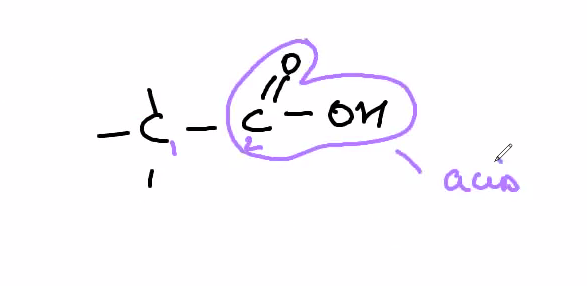 O
C - C - OH
1 2
acid